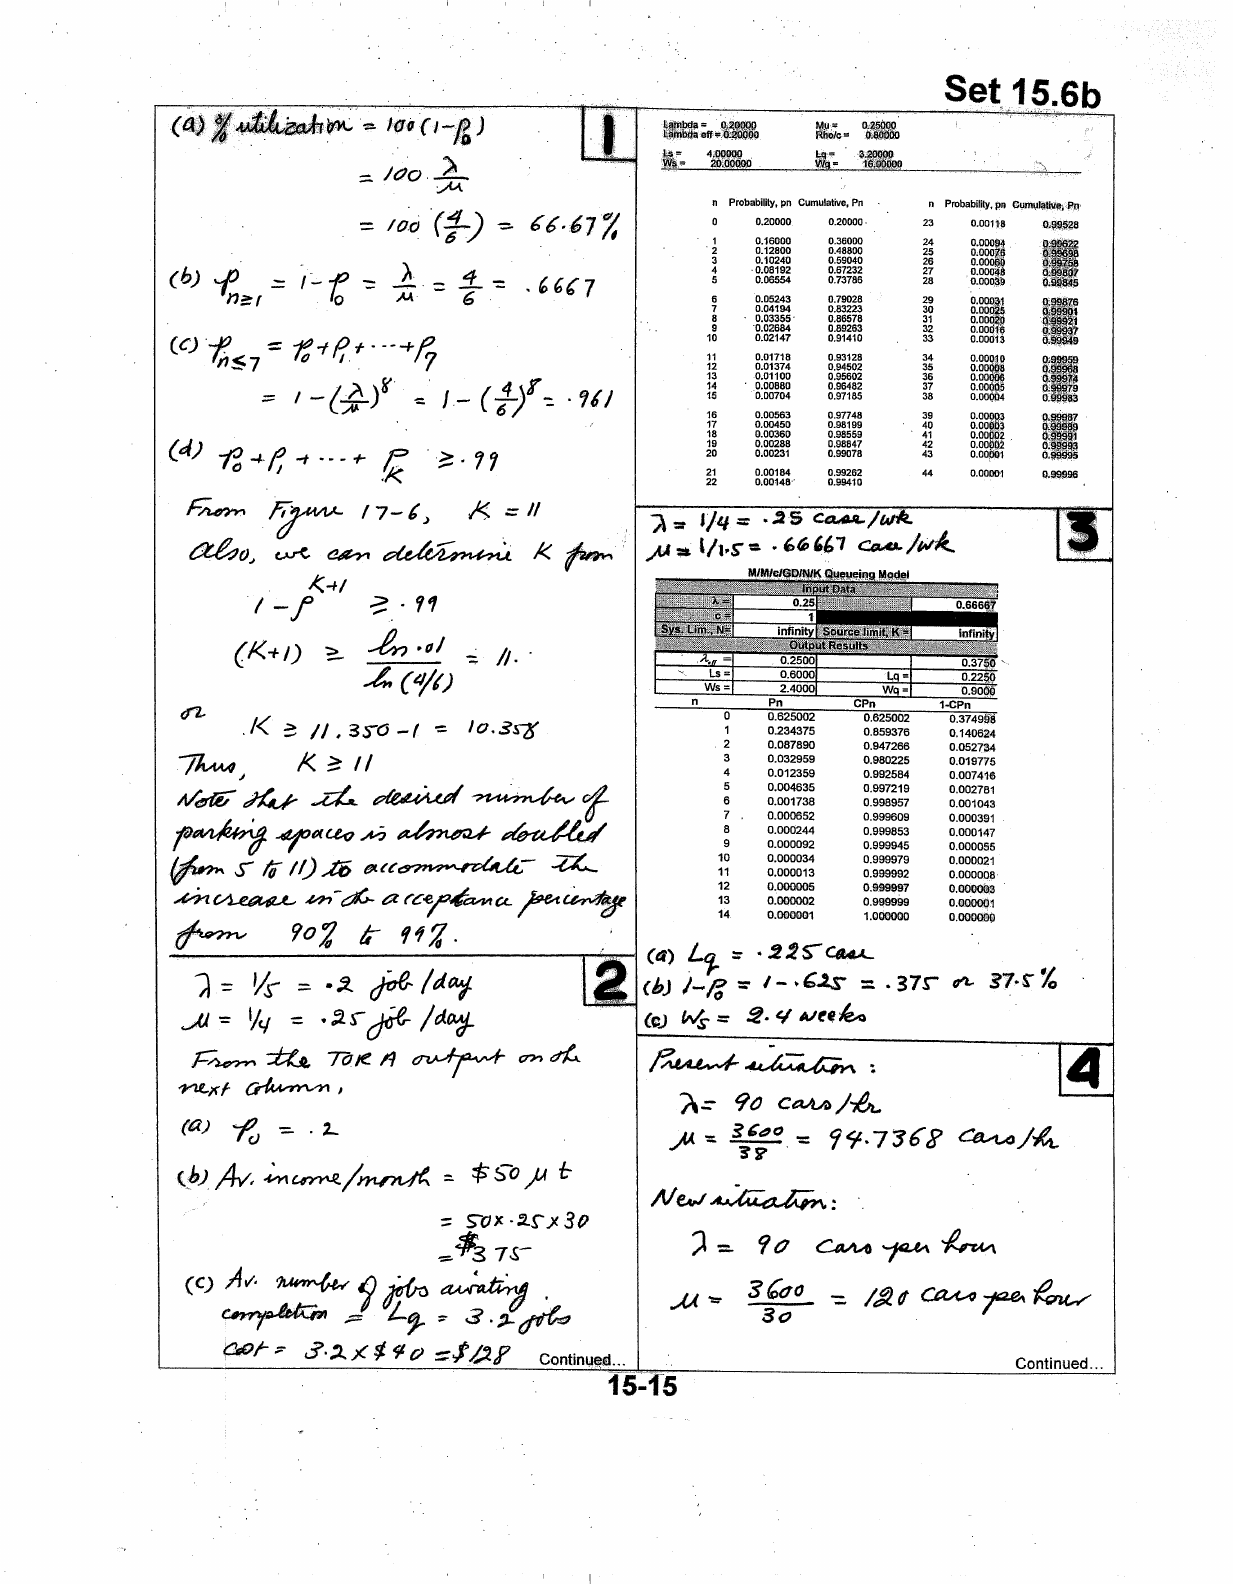 Set 15.6b
1
(a) % utilization = 100 (1-p₀)
= 100 λ/μ
= 100 (4/6) = 66.67%
(b) p_{n≥1} = 1-p₀ = λ/μ = 4/6 = .6667
(c) p_{n≤7} = p₀+p₁+---+p₇
= 1-(λ/μ)⁸ = 1-(4/6)⁸ = .961
(d) p₀+p₁+---+ p_K ≥ .99
From Figure 17-6, K = 11
Also, we can determine K from
1-ρ^{K+1} ≥ .99
(K+1) ≥ ln .01 / ln (4/6) = 11.
or
K ≥ 11.350-1 = 10.358
Thus, K ≥ 11
Note that the desired number of
parking spaces is almost doubled
(from 5 to 11) to accommodate the
increase in the acceptance percentage
from 90% to 99%.
2
λ = 1/5 = .2 job/day
μ = 1/4 = .25 job/day
From the TORA output on the
next column,
(a) p₀ = .2
(b) Av. income/month = $50 μ t
= 50x.25x30
= $375
(c) Av. number of jobs awaiting
completion = Lq = 3.2 jobs
cost = 3.2 x $40 = $128
Continued...
Lambda = 0.20000 Mu = 0.25000
Lambda eff = 0.20000 Rho/c = 0.80000
Ls = 4.00000 Lq = 3.20000
Ws = 20.00000 Wq = 16.00000
n Probability, pn Cumulative, Pn n Probability, pn Cumulative, Pn
0 0.20000 0.20000 23 0.00118 0.99528
1 0.16000 0.36000 24 0.00094 0.99622
2 0.12800 0.48800 25 0.00076 0.99698
3 0.10240 0.59040 26 0.00060 0.99758
4 0.08192 0.67232 27 0.00048 0.99807
5 0.06554 0.73786 28 0.00039 0.99845
6 0.05243 0.79028 29 0.00031 0.99876
7 0.04194 0.83223 30 0.00025 0.99901
8 0.03355 0.86578 31 0.00020 0.99921
9 0.02684 0.89263 32 0.00016 0.99937
10 0.02147 0.91410 33 0.00013 0.99949
11 0.01718 0.93128 34 0.00010 0.99959
12 0.01374 0.94502 35 0.00008 0.99968
13 0.01100 0.95602 36 0.00006 0.99974
14 0.00880 0.96482 37 0.00005 0.99979
15 0.00704 0.97185 38 0.00004 0.99983
16 0.00563 0.97748 39 0.00003 0.99987
17 0.00450 0.98199 40 0.00003 0.99989
18 0.00360 0.98559 41 0.00002 0.99991
19 0.00288 0.98847 42 0.00002 0.99993
20 0.00231 0.99078 43 0.00001 0.99995
21 0.00184 0.99262 44 0.00001 0.99996
22 0.00148 0.99410
3
λ = 1/4 = .25 case/wk
μ = 1/1.5 = .66667 case/wk
M/M/c/GD/N/K Queueing Model
Input Data
λ = 0.25 0.66667
c = 1
Sys. Lim., N= infinity Source limit, K = infinity
Output Results
λeff = 0.2500 0.3750
Ls = 0.6000 Lq = 0.2250
Ws = 2.4000 Wq = 0.9000
n Pn CPn 1-CPn
0 0.625002 0.625002 0.374998
1 0.234375 0.859376 0.140624
2 0.087890 0.947266 0.052734
3 0.032959 0.980225 0.019775
4 0.012359 0.992584 0.007416
5 0.004635 0.997219 0.002781
6 0.001738 0.998957 0.001043
7 0.000652 0.999609 0.000391
8 0.000244 0.999853 0.000147
9 0.000092 0.999945 0.000055
10 0.000034 0.999979 0.000021
11 0.000013 0.999992 0.000008
12 0.000005 0.999997 0.000003
13 0.000002 0.999999 0.000001
14 0.000001 1.000000 0.000000
(a) Lq = .225 case
(b) 1-p₀ = 1-.625 = .375 or 37.5%
(c) Ws = 2.4 weeks
4
Present situation:
λ = 90 cars/hr
μ = 3600/38 = 94.7368 cars/hr
New situation:
λ = 90 cars per hour
μ = 3600/30 = 120 cars per hour
Continued...
15-15